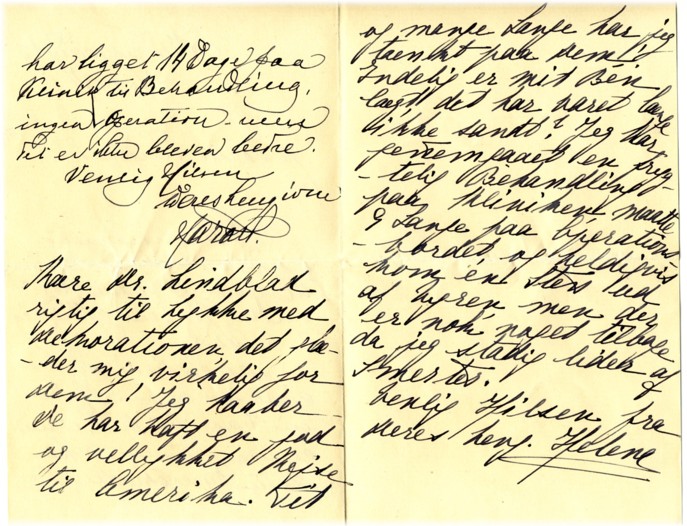 har ligget 14 Dage paa
Klinik til Behandling,
ingen Operation - men
er ikke bleven bedre.
Venlig Hilsen
Deres hengivne
Kære Hr. Lindblad
rigtig til Lykke med
Dekorationen, det glæ-
-der mig virkelig for
Dem! Jeg haaber
De har haft en god
og vellykket Rejse
til Amerika. Tit
og mange Gange har jeg
tænkt paa Dem!
Endelig er mit Ben
lægt det har varet længe
ikke sandt? Jeg har
gennemgaaet en fryg-
-telig Behandling
paa Kliniken maatte
9 Gange paa Operations
-bordet og heldigvis
kom en Sten ud
af Nyren men der
er nok noget tilbage
da jeg stadig lider af
Smerter.
Venlig Hilsen fra
Deres heng. Helene